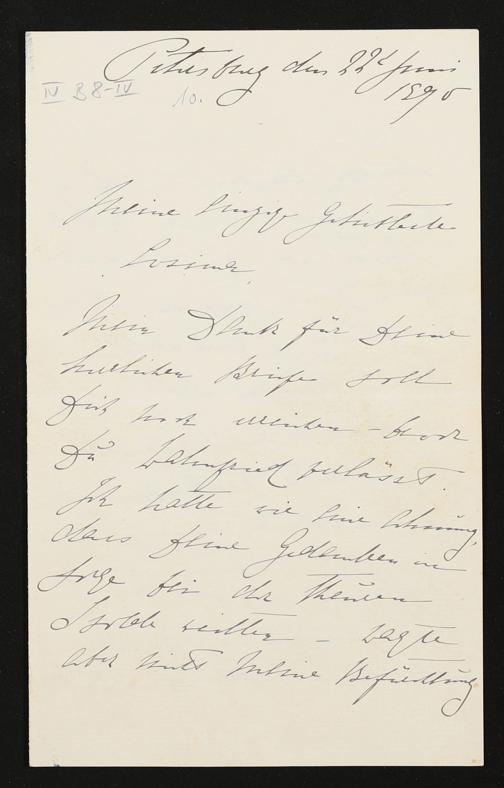 Petersburg den 22t Juni
1890
IV B 8-IV
10.
Meine einzige Geliebteste
Cosima,
Mein Dank für Deine
herrlichen Briefe soll
Dich noch erreichen – bevor
Du Wahnfried verlässt.
Ich hatte wie eine Ahnung,
dass Deine Gedanken in
Sorge bei der Theuren
Isolde weilten – wagte
aber nicht meine Befürchtung